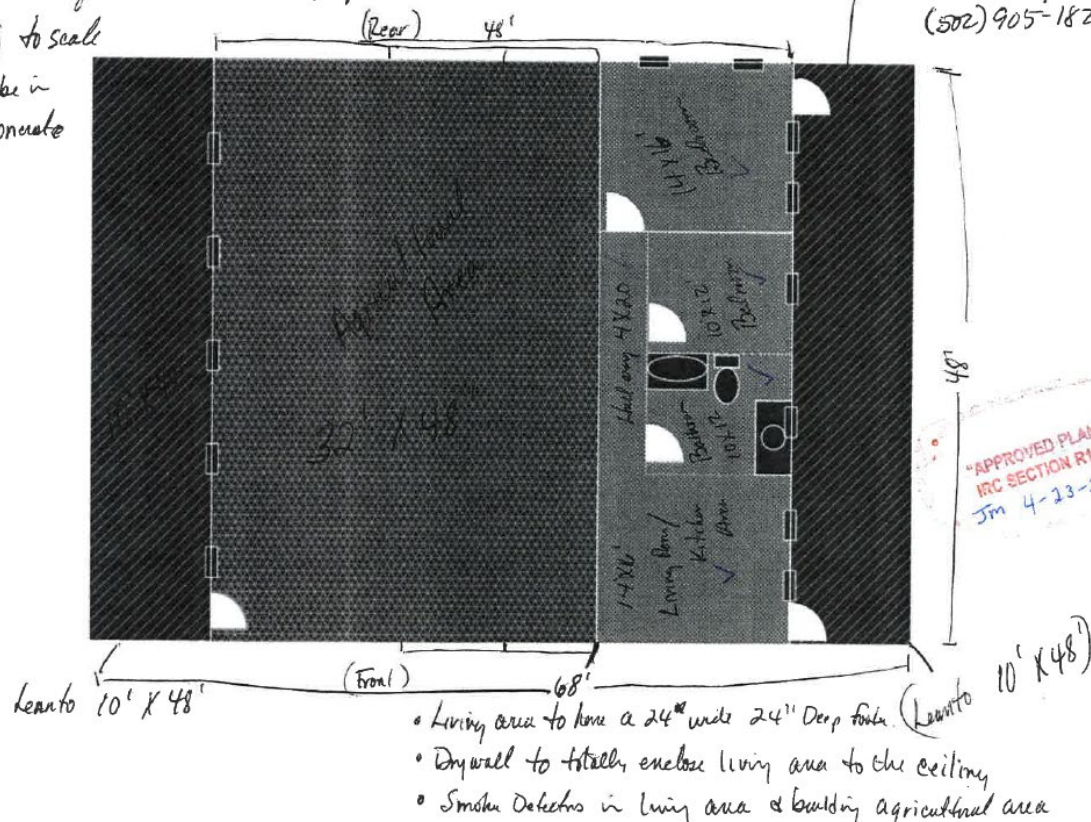 (502) 905-182
to scale
be in
concrete
(Rear) 48'
14 X 16'
Bedroom
Agricultural
Area
32' X 48'
Hallway 4 X 20
10 X 12
Bedroom
Bathroom
10 X 12
14 X 16'
Living Room/
Kitchen
Area
48'
"APPROVED PLAN
IRC SECTION R1
Jm 4-23-
(Front) 68'
Leanto 10' X 48'
(Leanto 10' X 48')
• Living area to have a 24" wide 24" Deep footer.
• Drywall to totally enclose living area to the ceiling
• Smoke Detectors in living area & building agricultural area